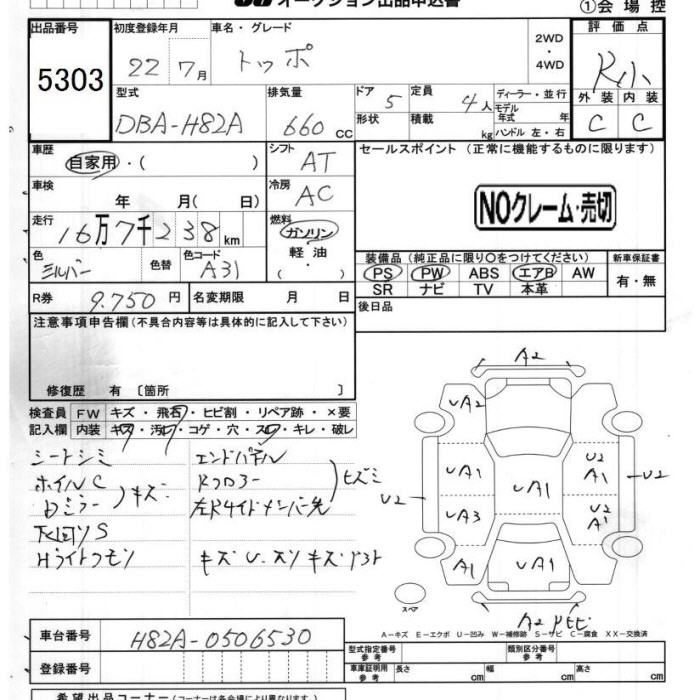 オークション出品申込書
①会 場 控
出品番号 初度登録年月 車名・グレード 2WD ・ 4WD 評 価 点
5303 22 7月 トッポ R小
型式 排気量 ドア 5 定員 4人 ディーラー・並行 外装 内装
DBA-H82A 660 CC 形状 積載 kg モデル年式 年 ハンドル 左・右 C C
車歴 自家用・( ) シフト AT セールスポイント(正常に機能するものに限ります)
車検 年 月( 日) 冷房 AC
NOクレーム・売切
走行 16万7千238km 燃料 ガソリン 軽油 ( ・ )
色 シルバー 色替 色コード A31 装備品(純正品に限り○をつけてください) 新車保証書
PS PW ABS エアB AW 有・無
SR ナビ TV 本革
R券 9.750円 名変期限 月 日 後日品
注意事項申告欄(不具合内容等は具体的に記入して下さい)
修復歴 有〔箇所 〕
検査員 FW キズ・飛石・ヒビ割・リペア跡・×要
記入欄 内装 キズ・汚れ・コゲ・穴・スレ・キレ・破レ
シートシミ エンドパネル
ホイルC Rフロアー ヒズミ
Dミラー キズ 左R サイドメンバー先
下回りS
Hライトクモリ キズU.スリキズ
A2
UA2
UA1 UA1 U2 A1 U2
U2 UA3 U2 A1
A1 UA1
スペア
A2
A-キズ E-エクボ U-凹み W-補修跡 S-サビ C-腐食 XX-交換済
車台番号 H82A-0506530
型式指定番号 参考 類別区分番号 参考
登録番号 車庫証明用 参考 長さ cm 幅 cm 高さ cm
希望出品コーナー(コーナーは各会場により異なります)